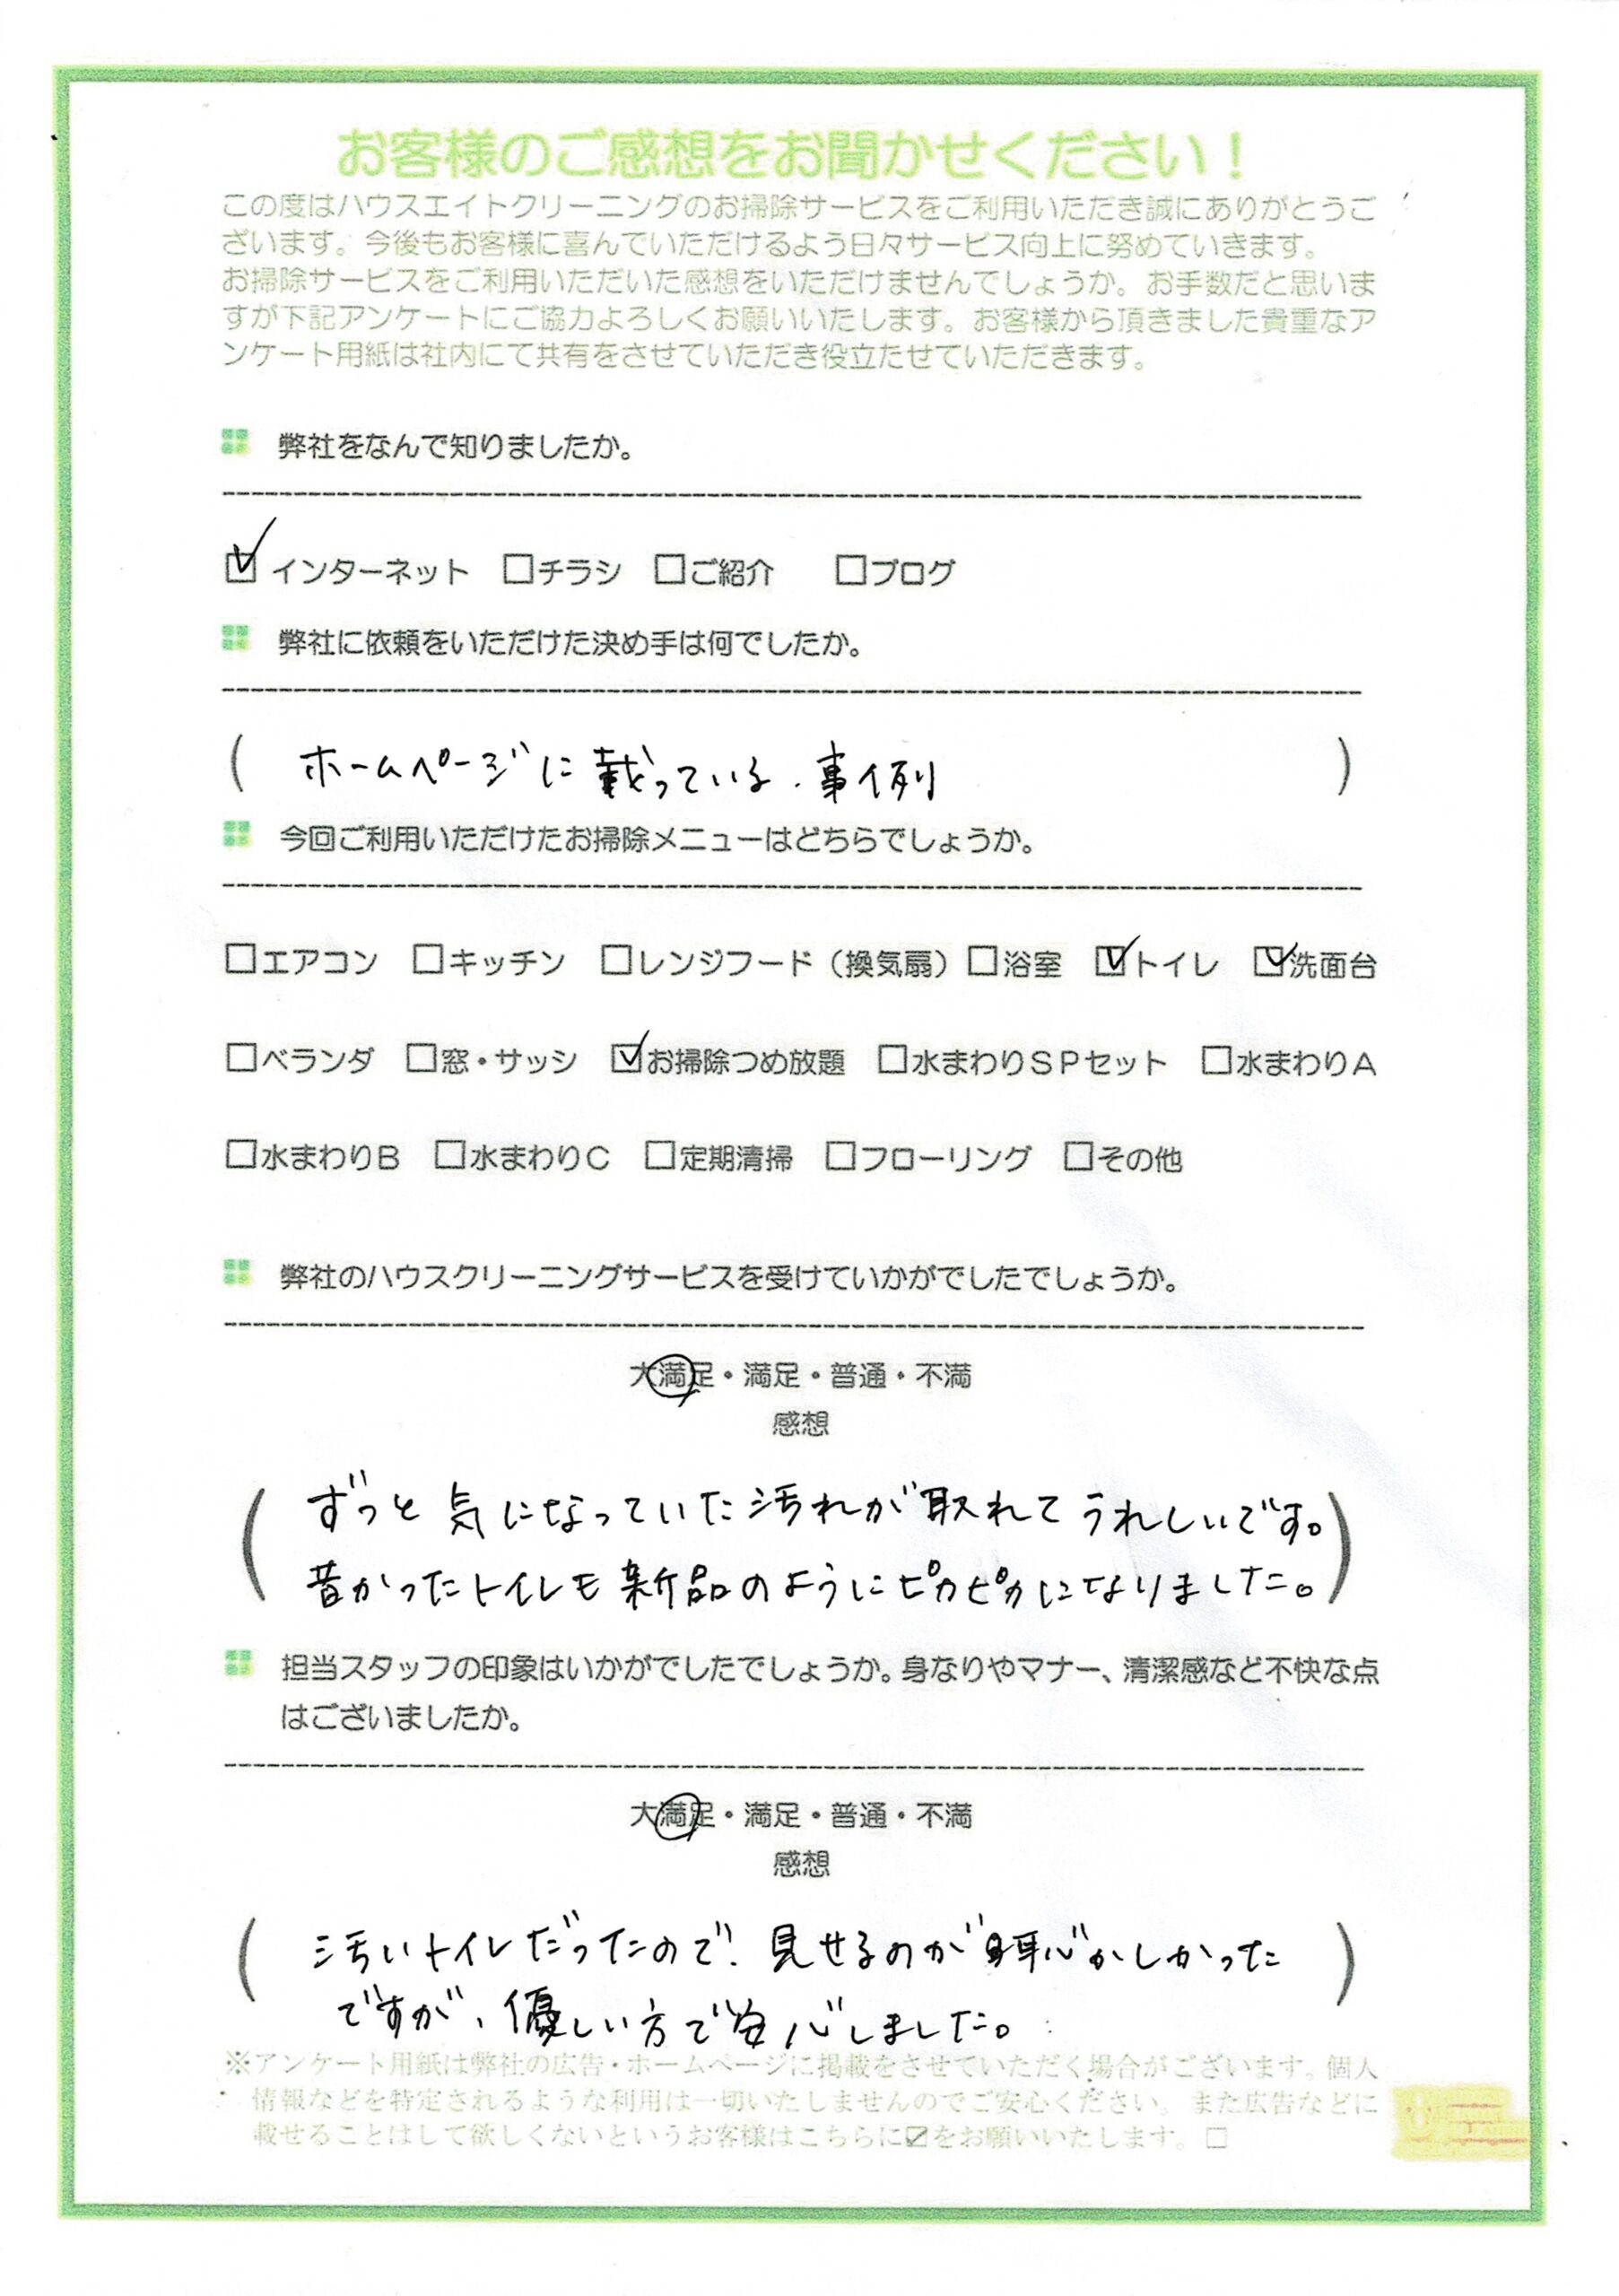 お客様のご感想をお聞かせください！
この度はハウスエイトクリーニングのお掃除サービスをご利用いただき誠にありがとうご
ざいます。今後もお客様に喜んでいただけるよう日々サービス向上に努めていきます。
お掃除サービスをご利用いただいた感想をいただけませんでしょうか。お手数だと思いま
すが下記アンケートにご協力よろしくお願いいたします。お客様から頂きました貴重なア
ンケート用紙は社内にて共有をさせていただき役立たせていただきます。
弊社をなんで知りましたか。
☑インターネット □チラシ □ご紹介 □ブログ
弊社に依頼をいただけた決め手は何でしたか。
( ホームページに載っている、事例 )
今回ご利用いただけたお掃除メニューはどちらでしょうか。
□エアコン □キッチン □レンジフード（換気扇）□浴室 ☑トイレ ☑洗面台
□ベランダ □窓・サッシ ☑お掃除つめ放題 □水まわりＳＰセット □水まわりＡ
□水まわりＢ □水まわりＣ □定期清掃 □フローリング □その他
弊社のハウスクリーニングサービスを受けていかがでしたでしょうか。
大満足・満足・普通・不満
感想
( ずっと気になっていた汚れが取れてうれしいです。
昔かったトイレも新品のようにピカピカになりました。)
担当スタッフの印象はいかがでしたでしょうか。身なりやマナー、清潔感など不快な点
はございましたか。
大満足・満足・普通・不満
感想
( 汚いトイレだったので、見せるのが恥かしかった )
ですが、優しい方で安心しました。
※アンケート用紙は弊社の広告・ホームページに掲載をさせていただく場合がございます。個人
情報などを特定されるような利用は一切いたしませんのでご安心ください。また広告などに
載せることはして欲しくないというお客様はこちらに☑をお願いいたします。□